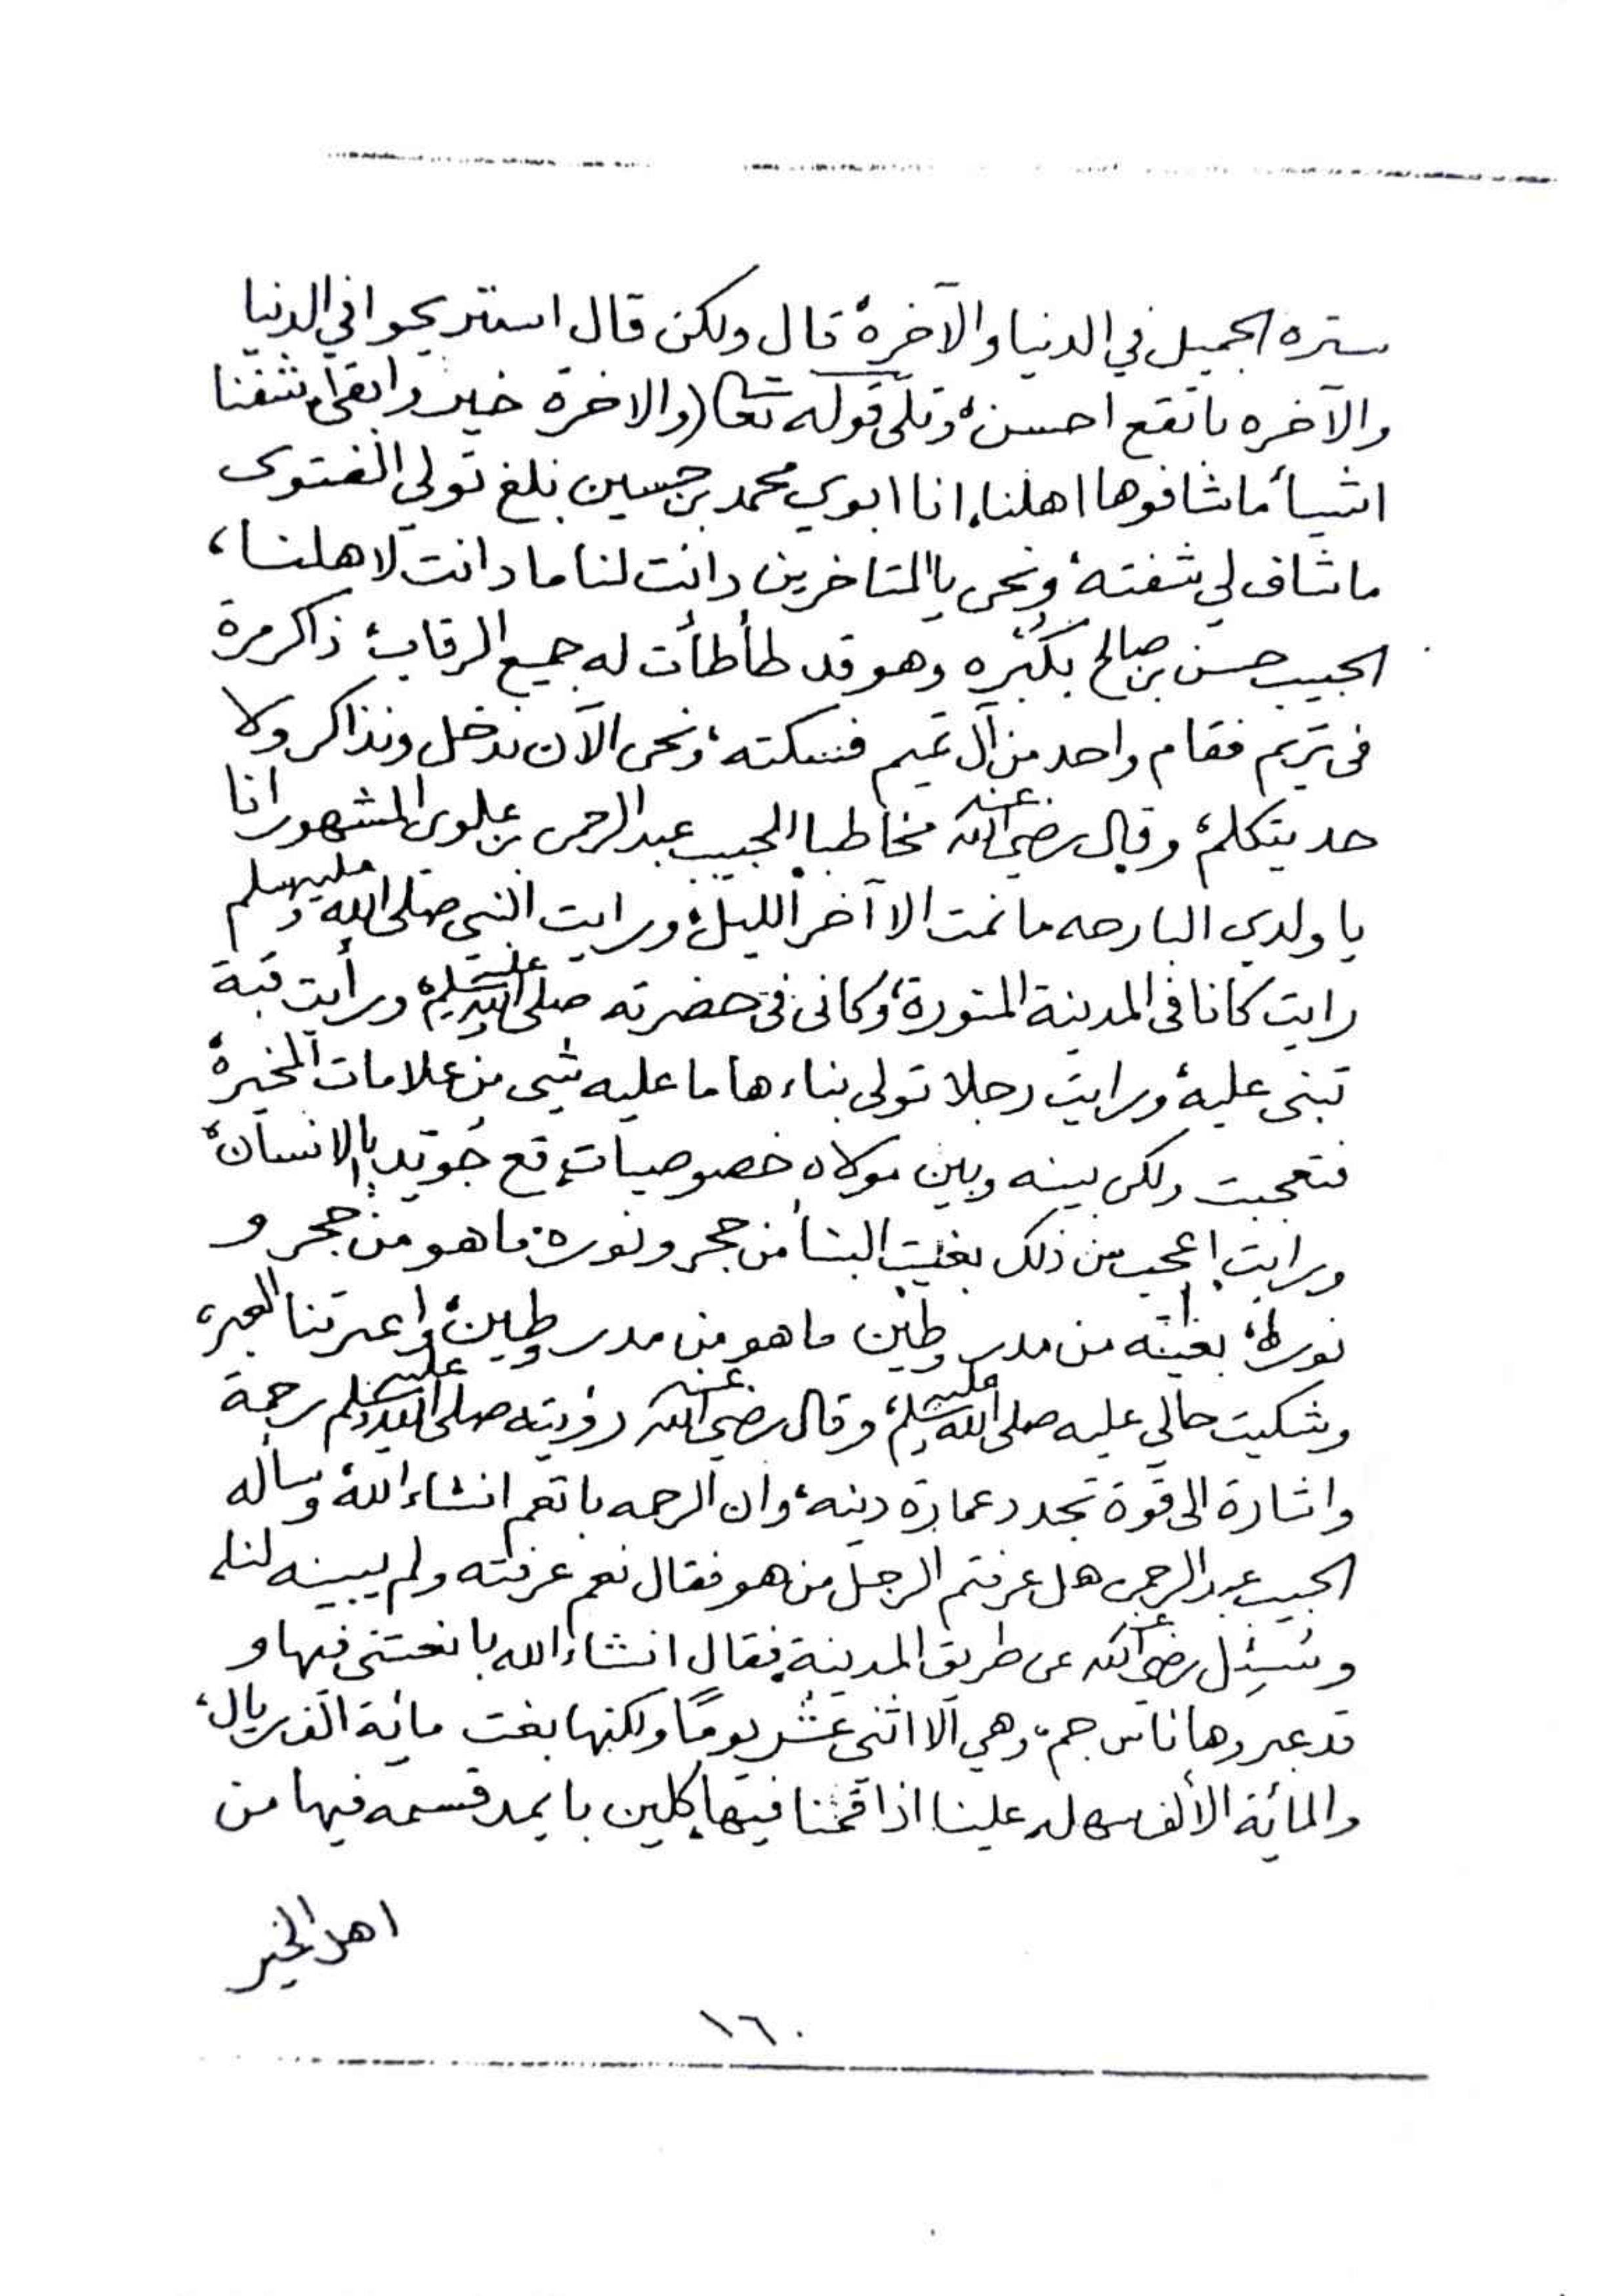 ستره الجميل في الدنيا والآخرة، قال ولكن قال استريحوا في الدنيا
والآخره باتقع احسن، وتلى قوله تعالى (والاخرة خير وابقى) شفنا
اشيأ ماشافوها اهلنا، انا ابوي محمد بن حسين بلغ تولي الفتوى
ماشاف لي شفته، ونحن يالمتاخرين دانت لنا ما دانت لاهلنا،
الحبيب حسن بن صالح بكُبْره وهو قد طأطأت له جميع الرقاب، ذاكر مرة
فى تريم فقام واحد من آل تميم فسكته، ونحن الآن ندخل ونذاكر ولا
حد يتكلم، وقال رضي الله عنه مخاطبا الحبيب عبدالرحمن بن علوى المشهور انا
يا ولدي البارحه ما نمت الا آخر الليل، ورايت النبي صلى الله عليه وسلم
رايت كانا فى المدينة المنورة، وكانى فى حضرته صلى الله عليه وسلم، ورأيت قبة
تبنى عليه، ورايت رجلا تولى بناءها ما عليه شي من علامات الخير،
فتعجبت ولكن بينه وبين مولاه خصوصيات، قع خويدم يالانسان،
ورايت اعجب من ذلك بغيت البنأ من حجر ونوره، ما هو من حجر و
نوره، بغيته من مدر وطين ما هو من مدر وطين، واعبرتنا العبر،
وشكيت حالي عليه صلى الله عليه وسلم، وقال رضي الله عنه رؤيته صلى الله عليه وسلم رحمة
واشارة الى قوة تجدد عمارة دينه، وان الرحمه باتعم انشاء الله، وساله
الحبيب عبدالرحمن هل عرفتم الرجل من هو فقال نعم عرفته ولم يبينه لنا،
وسُئِل رضي الله عنه عن طريق المدينة، فقال انشاء الله بانعتنى فيها و
قد عبروها ناس جم، وهي الا اثنى عشر يومًا ولكنها بغت مائة الف ريال،
والمائة الألف سهله علينا اذا قمنا فيها، كلين بايمد قسمه فيها من
اهل الخير
١٦٠